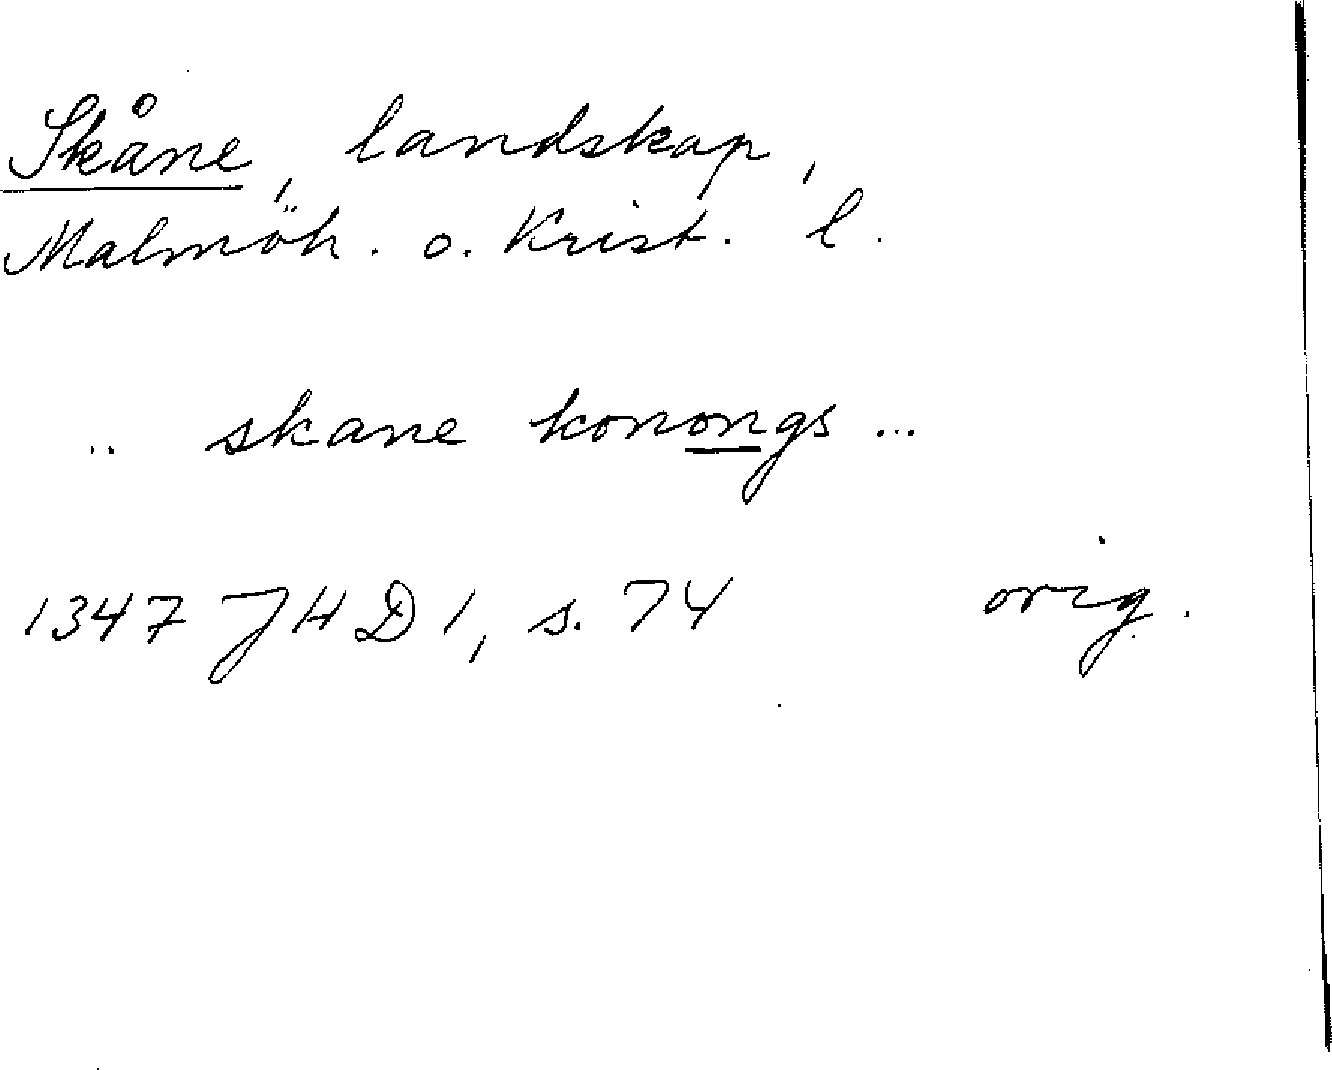 Skåne, landskap,
Malmöh. o. Krist. l.
.. skane konongs ...
1347 JHD 1, s. 74 orig.